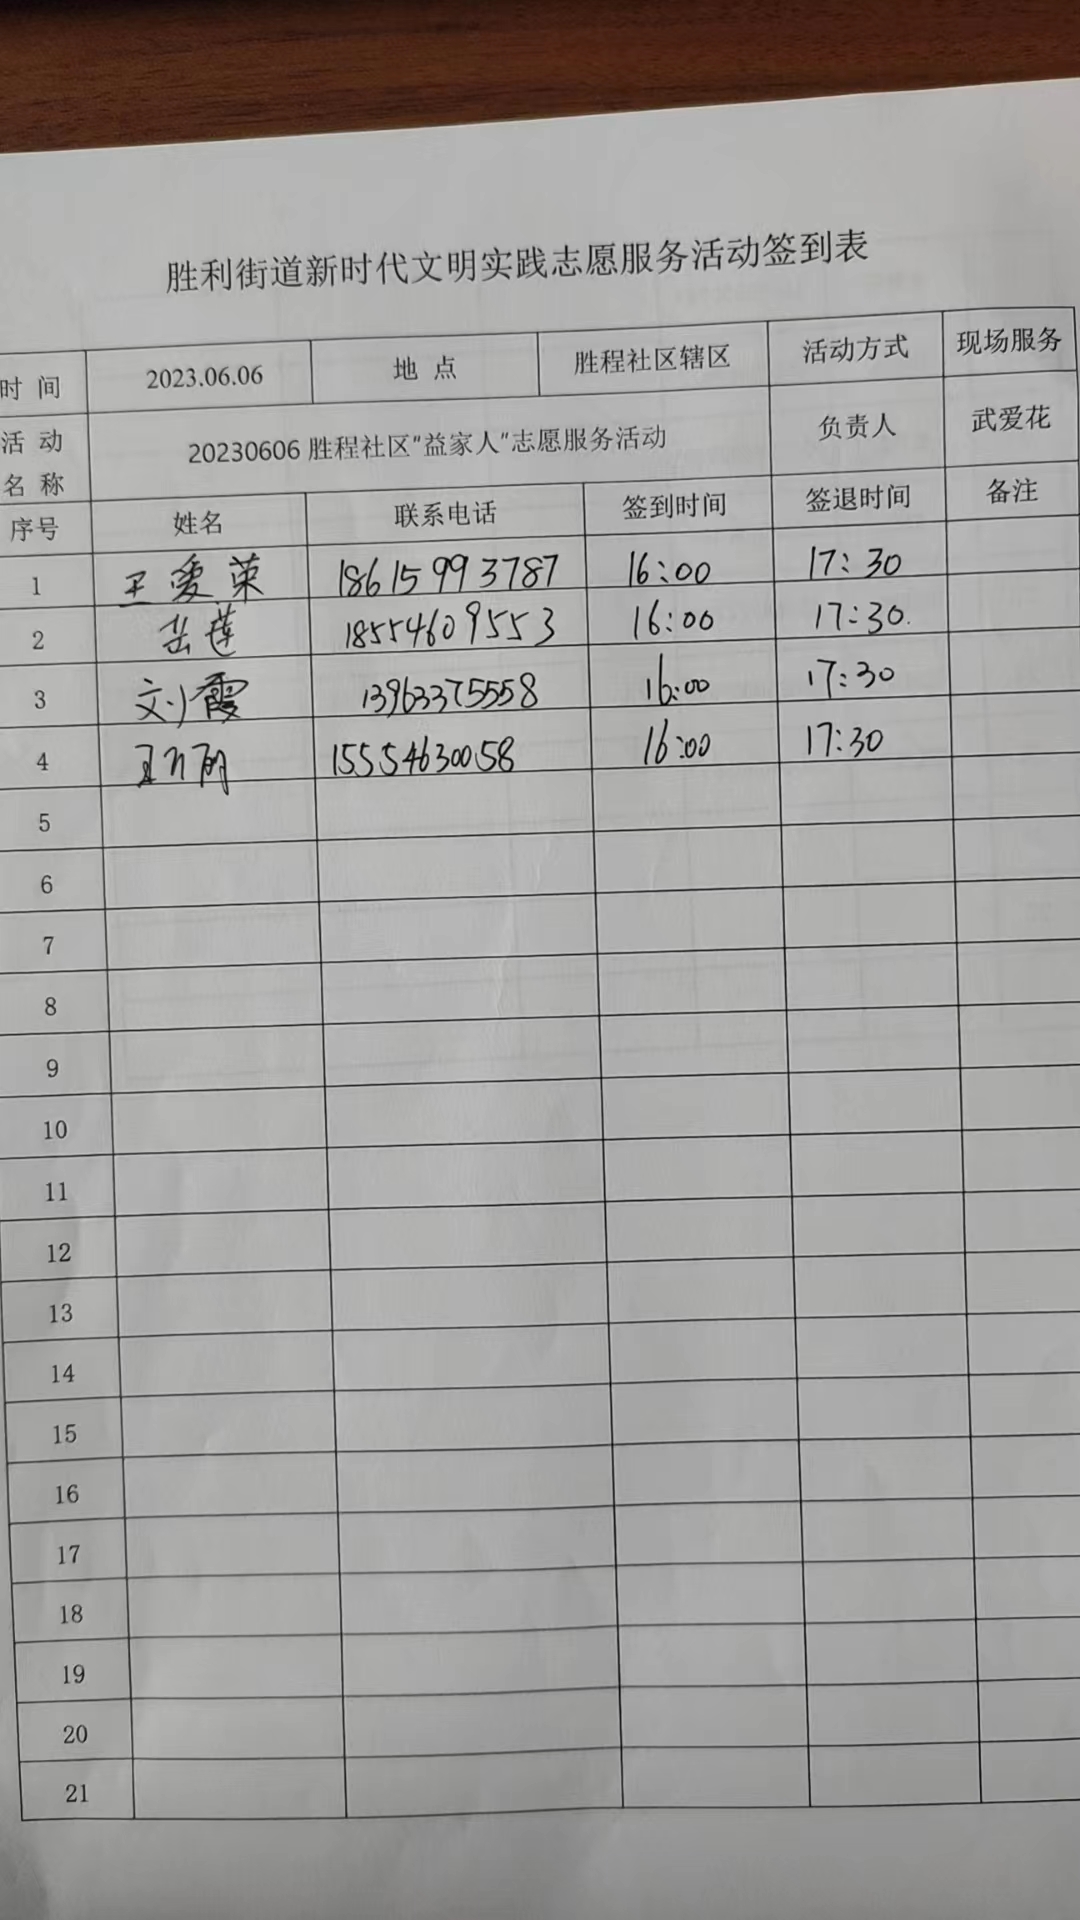 胜利街道新时代文明实践志愿服务活动签到表
时 间 2023.06.06 地 点 胜程社区辖区 活动方式 现场服务
活 动 名 称 20230606 胜程社区"益家人"志愿服务活动 负责人 武爱花
序号 姓名 联系电话 签到时间 签退时间 备注
1 王爱荣 18615993787 16:00 17:30
2 岳莲 18554609553 16:00 17:30.
3 刘霞 13963375558 16:00 17:30
4 15554630058 16:00 17:30
5
6
7
8
9
10
11
12
13
14
15
16
17
18
19
20
21